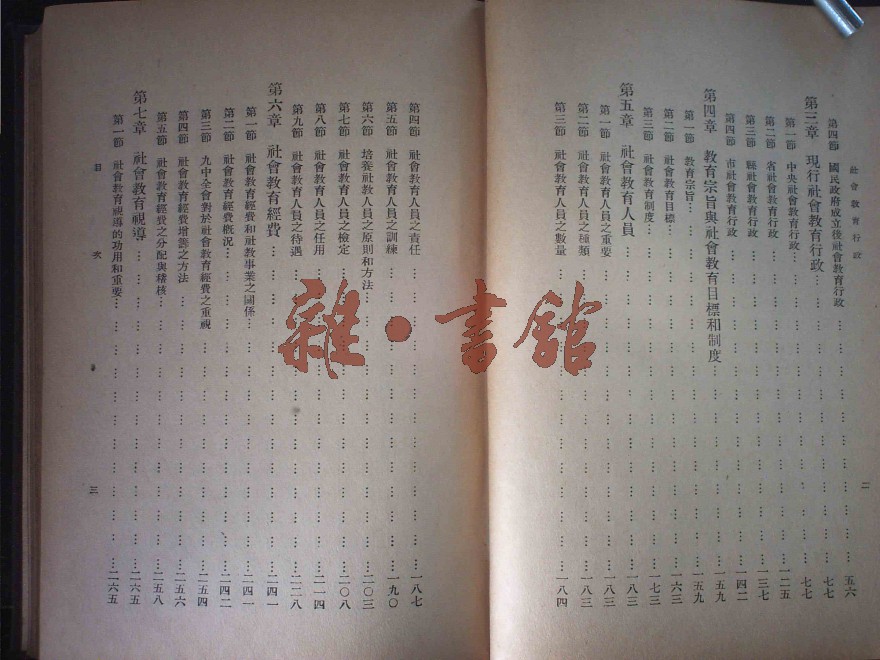 社會教育行政
二
第四節 國民政府成立後社會教育行政……五六
第三章 現行社會教育行政……七七
第一節 中央社會教育行政……七七
第二節 省社會教育行政……一二五
第三節 縣社會教育行政……一三七
第四節 市社會教育行政……一四二
第四章 教育宗旨與社會教育目標和制度……一五九
第一節 教育宗旨……一五九
第二節 社會教育目標……一六三
第三節 社會教育制度……一七三
第五章 社會教育人員……一八三
第一節 社會教育人員之重要……一八三
第二節 社會教育人員之種類……一八三
第三節 社會教育人員之數量……一八四
第四節 社會教育人員之責任……一八七
第五節 社會教育人員之訓練……一九〇
第六節 培養社教人員之原則和方法……二〇三
第七節 社會教育人員之檢定……二〇八
第八節 社會教育人員之任用……二一四
第九節 社會教育人員之待遇……二二八
第六章 社會教育經費……二四一
第一節 社會教育經費和社教事業之關係……二四一
第二節 社會教育經費概況……二四二
第三節 九中全會對於社會教育經費之重視……二五四
第四節 社會教育經費增籌之方法……二五六
第五節 社會教育經費之分配與稽核……二五八
第七章 社會教育視導……二六五
第一節 社會教育視導的功用和重要……二六五
目次
三
雜·書館